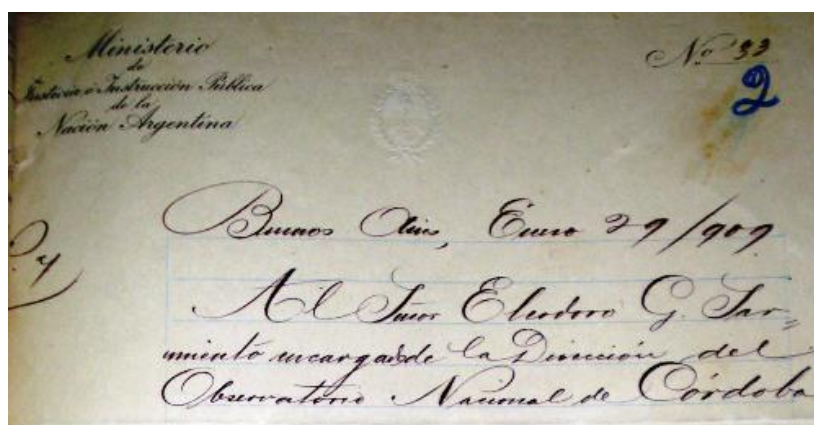 Ministerio
de
Justicia é Instrucción Pública
de la
Nación Argentina
Nº 33
2
Buenos Aires, Enero 29/909
Al Señor Eleodoro G. Sar=
miento encargado de la Dirección del
Observatorio Nacional de Córdoba